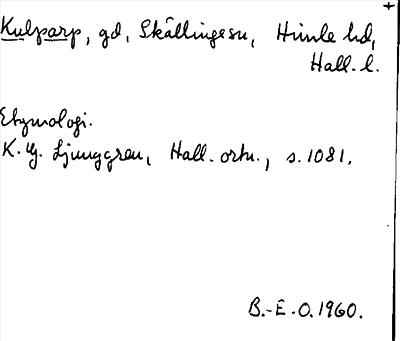 Kulparp, gd, Skällinge sn, Himle hd,
Hall. l.
Etymologi.
K. G. Ljunggren, Hall. ortn., s. 1081.
B.-E. O. 1960.